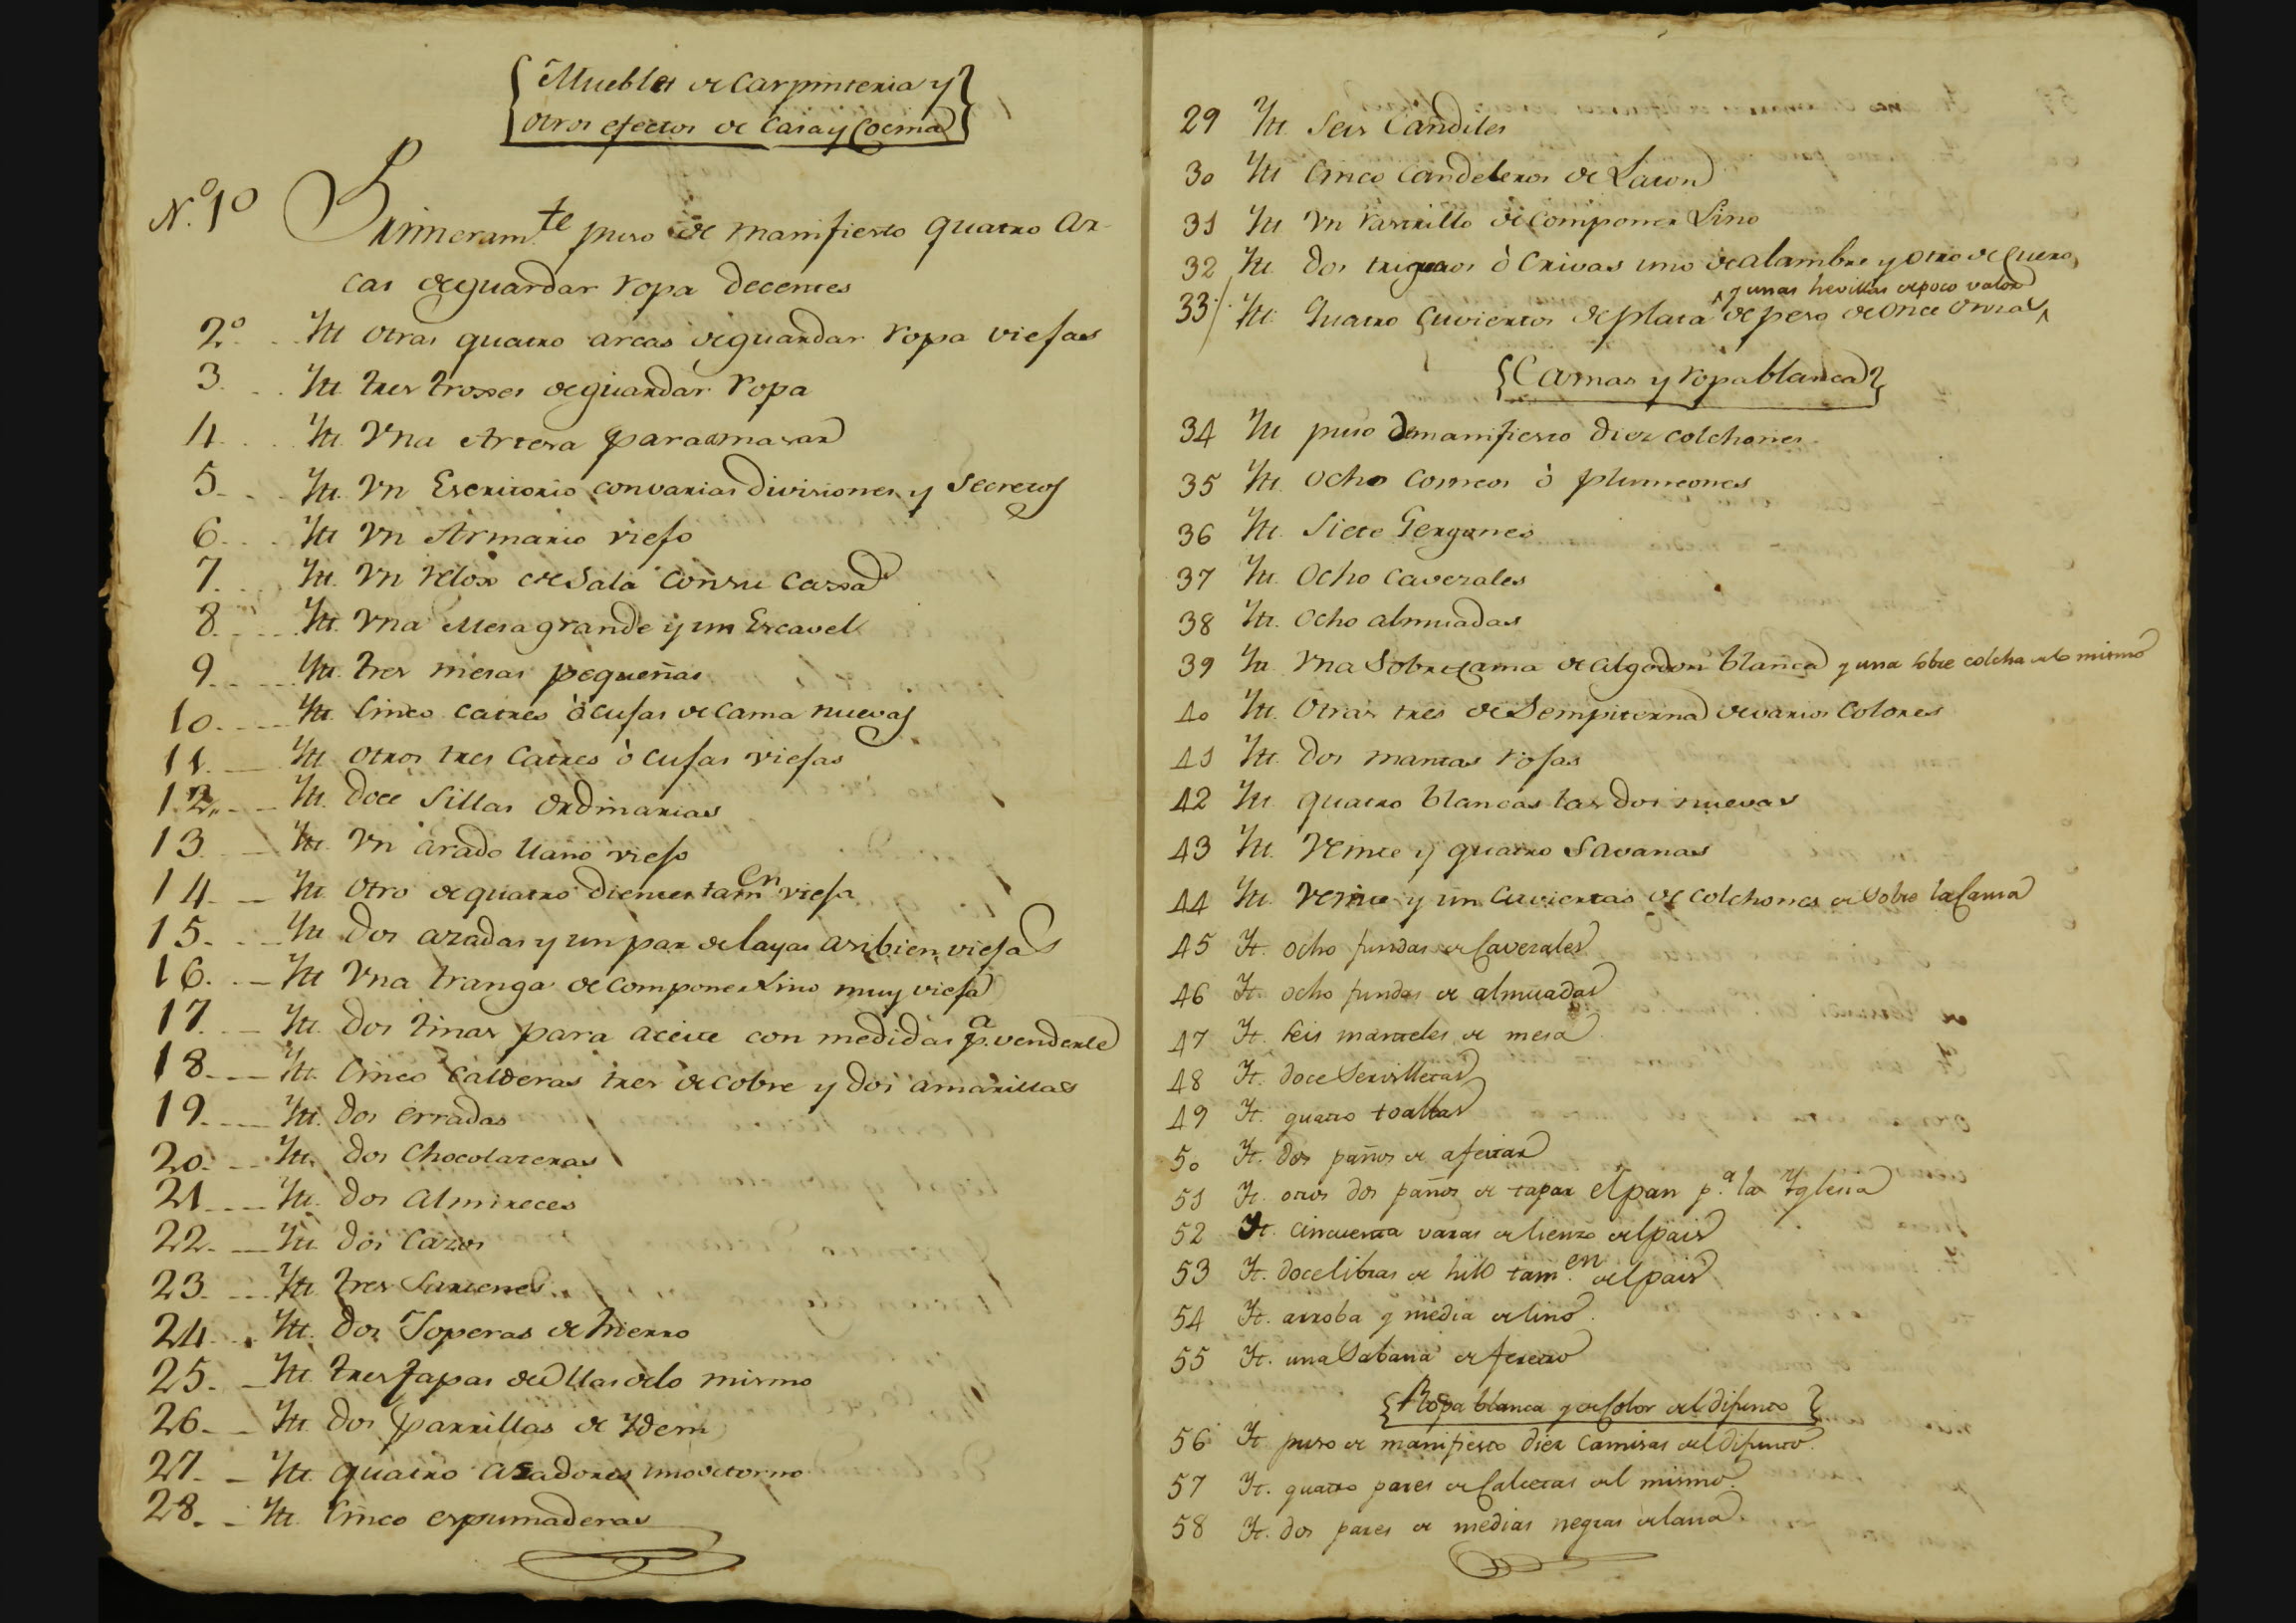 Muebles de Carpinteria y
otros efectos de Casa y Cocina
N.º 1º Primeram.te puso de manifiesto quatro Ar-
cas de guardar ropa decentes
2º Itt otras quatro arcas de guardar ropa viejas
3. Itt. tres troxes de guardar ropa
4. Itt. Vna Artesa para amasar
5. Itt. Vn Escritorio con varias divisiones y Secretos
6. Itt Vn Armario viejo
7. Itt. Vn relox de Sala con su caxa
8. Itt. Vna Mesa grande y un Escavel
9. Itt. tres mesas pequeñas
10. Itt. Cinco catres ò cujas de cama nuevas
11. Itt otros tres catres ò cujas viejas
12. Itt. doce Sillas ordinarias
13. Itt. Vn arado llano viejo
14. Itt. otro de quatro dientes tam.en viejo
15. Itt Dos azadas y un par de layas assi bien viejas
16. Itt Vna tranga de componer Lino muy vieja
17. Itt. Dos tinas para aceite con medidas p.a venderle
18. Itt. Cinco calderas tres de cobre y dos amarillas
19. Itt. dos erradas
20. Itt. dos Chocolateras
21 Itt. dos almireces
22. Itt. dos cazos
23. Itt. tres Sartenes
24. Itt. Dos Soperas de hierro
25. Itt. tres tapas de ollas de lo mismo
26. Itt. Dos parrillas de Ydem
27. Itt. quatro asadores uno de torno
28. Itt. Cinco espumaderas
29 Itt. Seis Candiles
30 Itt Cinco candeleros de Laton
31 Itt Vn rastrillo de componer Lino
32 Itt. dos trigueros ò Crivas uno de alambre y otro de Cuero
y unas hevillas de poco valor
33 Itt. Quatro Cuviertos de plata de peso de once onzas
Camas y ropa blanca
34 Itt puso de manifiesto Diez colchones
35 Itt. ocho comeos ò plumeones
36 Itt. Siete Gergones
37 Itt. Ocho cavezales
38 Itt. Ocho almuadas
39 Itt. Vna Sobrecama de algodon blanca y una sobre colcha de lo mismo
40 Itt. Otras tres de Sempiterna de varios Colores
41 Itt. Dos mantas rojas
42 Itt. quatro blancas las dos nuevas
43 Itt. Veinte y quatro Savanas
44 Itt. Veinte y un Cuviertas de colchones de sobre la Cama
45 It. ocho fundas de Cavezales
46 It. ocho fundas de almuadas
47 It. seis manteles de mesa
48 It. doce Servilletas
49 It. quatro toallas
50 It. dos paños de afeitar
51 It. otros dos paños de tapar el pan p.a la Yglesia
52 It. cincuenta varas de lienzo del pais
53 It. doce libras de hilo tam.en del pais
54 It. arroba y media de lino
55 It. una Sabana de feretro
Ropa blanca y de Color del difunto
56 It. puso de manifiesto diez Camisas del difunto
57 It. quatro pares de Calcetas del mismo
58 It. dos pares de medias negras de lana